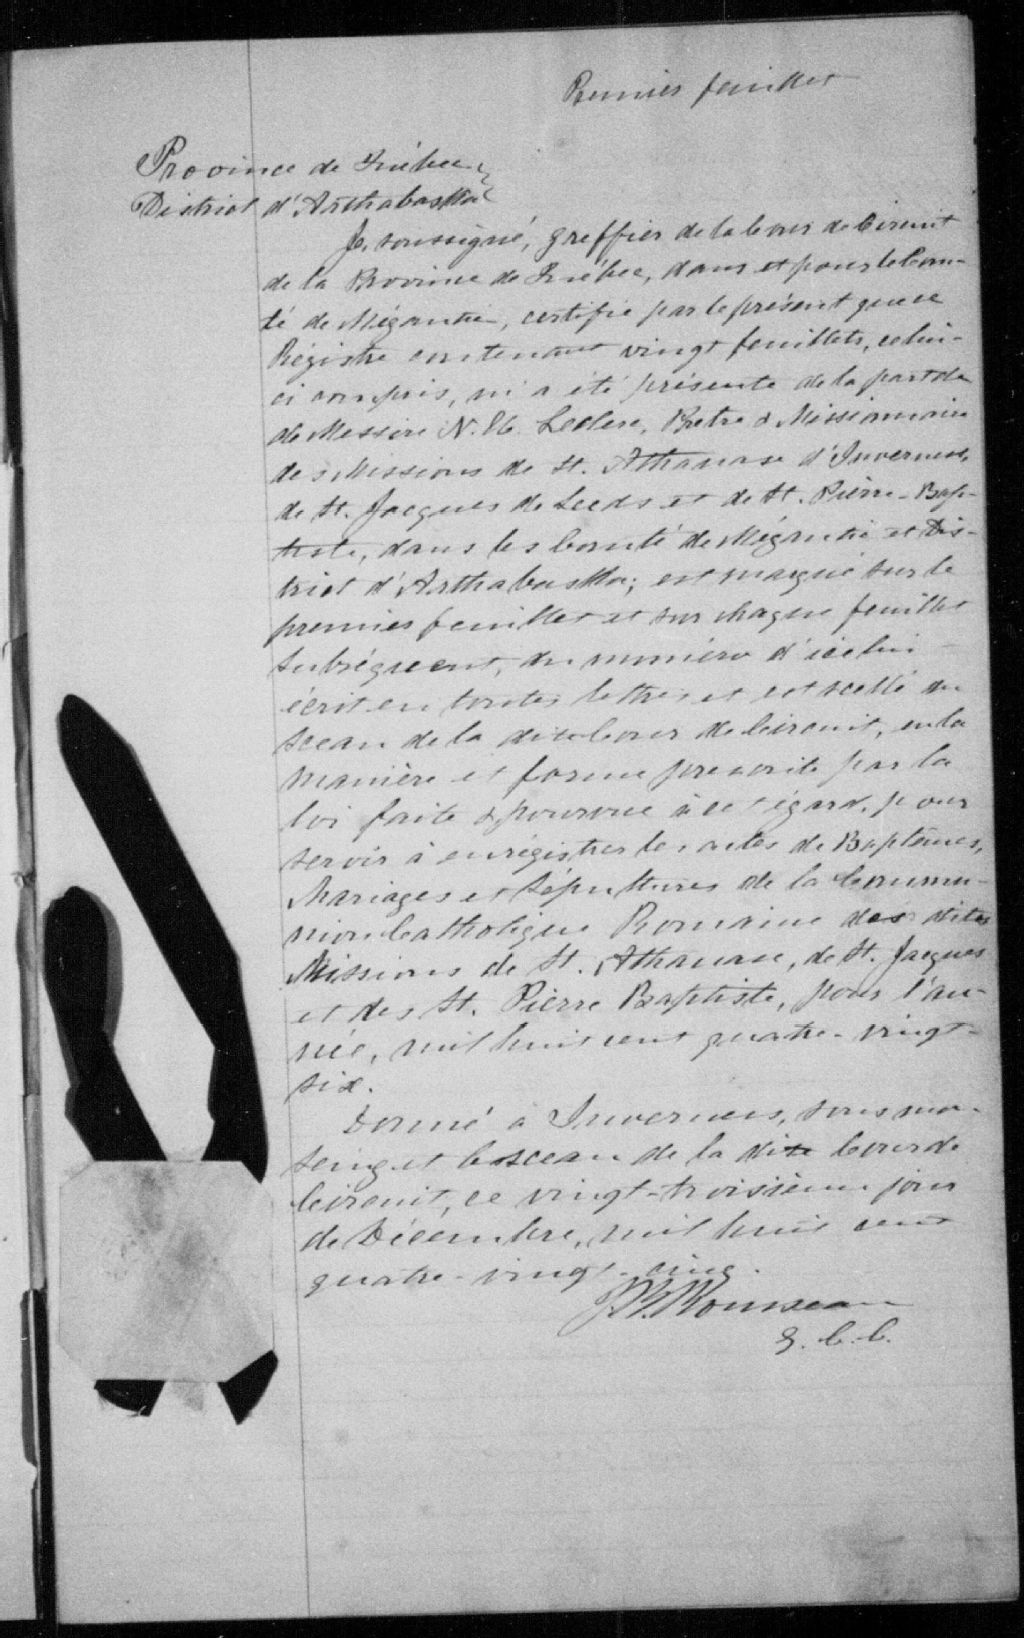 Premier feuillet
Province de Québec
District d'Arthabaska
Je, soussigné, greffier de la Cour de Circuit
de la Province de Québec, dans et pour le Com-
té de Mégantic, certifie par le présent que ce
Régistre contenant vingt feuillets, celui-
ci compris, m'a été présenté de la part de
de Messire N. H. Leclerc, Prêtre & Missionnaire
des Missions de St. Athanase d'Inverness,
de St. Jacques de Leeds et de St. Pierre-Bap-
tiste, dans les Comté de Mégantic et Dis-
trict d'Arthabaska; est marqué sur le
premier feuillet et sur chaque feuillet
subséquent, du numéro d'icelui
écrit en toutes lettres et est scellé du
sceau de la dite Cour de Circuit, en la
manière et forme prescrite par la
loi faite & pourvue à cet égard, pour
servir à enrégistrer les actes de Baptêmes,
Mariages et Sépultures de la Commu-
nion Catholique Romaine des dites
Missions de St. Athanase, de St. Jacques
et des St. Pierre Baptiste, pour l'an-
née, mil huit cent quatre-vingt-
six.
Donné à Inverness, sous mon
seing et le sceau de la dite Cour de
Circuit, ce vingt-troisième jour
de Décembre, mil huit cent
quatre-vingt-cinq.
Rousseau
G. C. C.